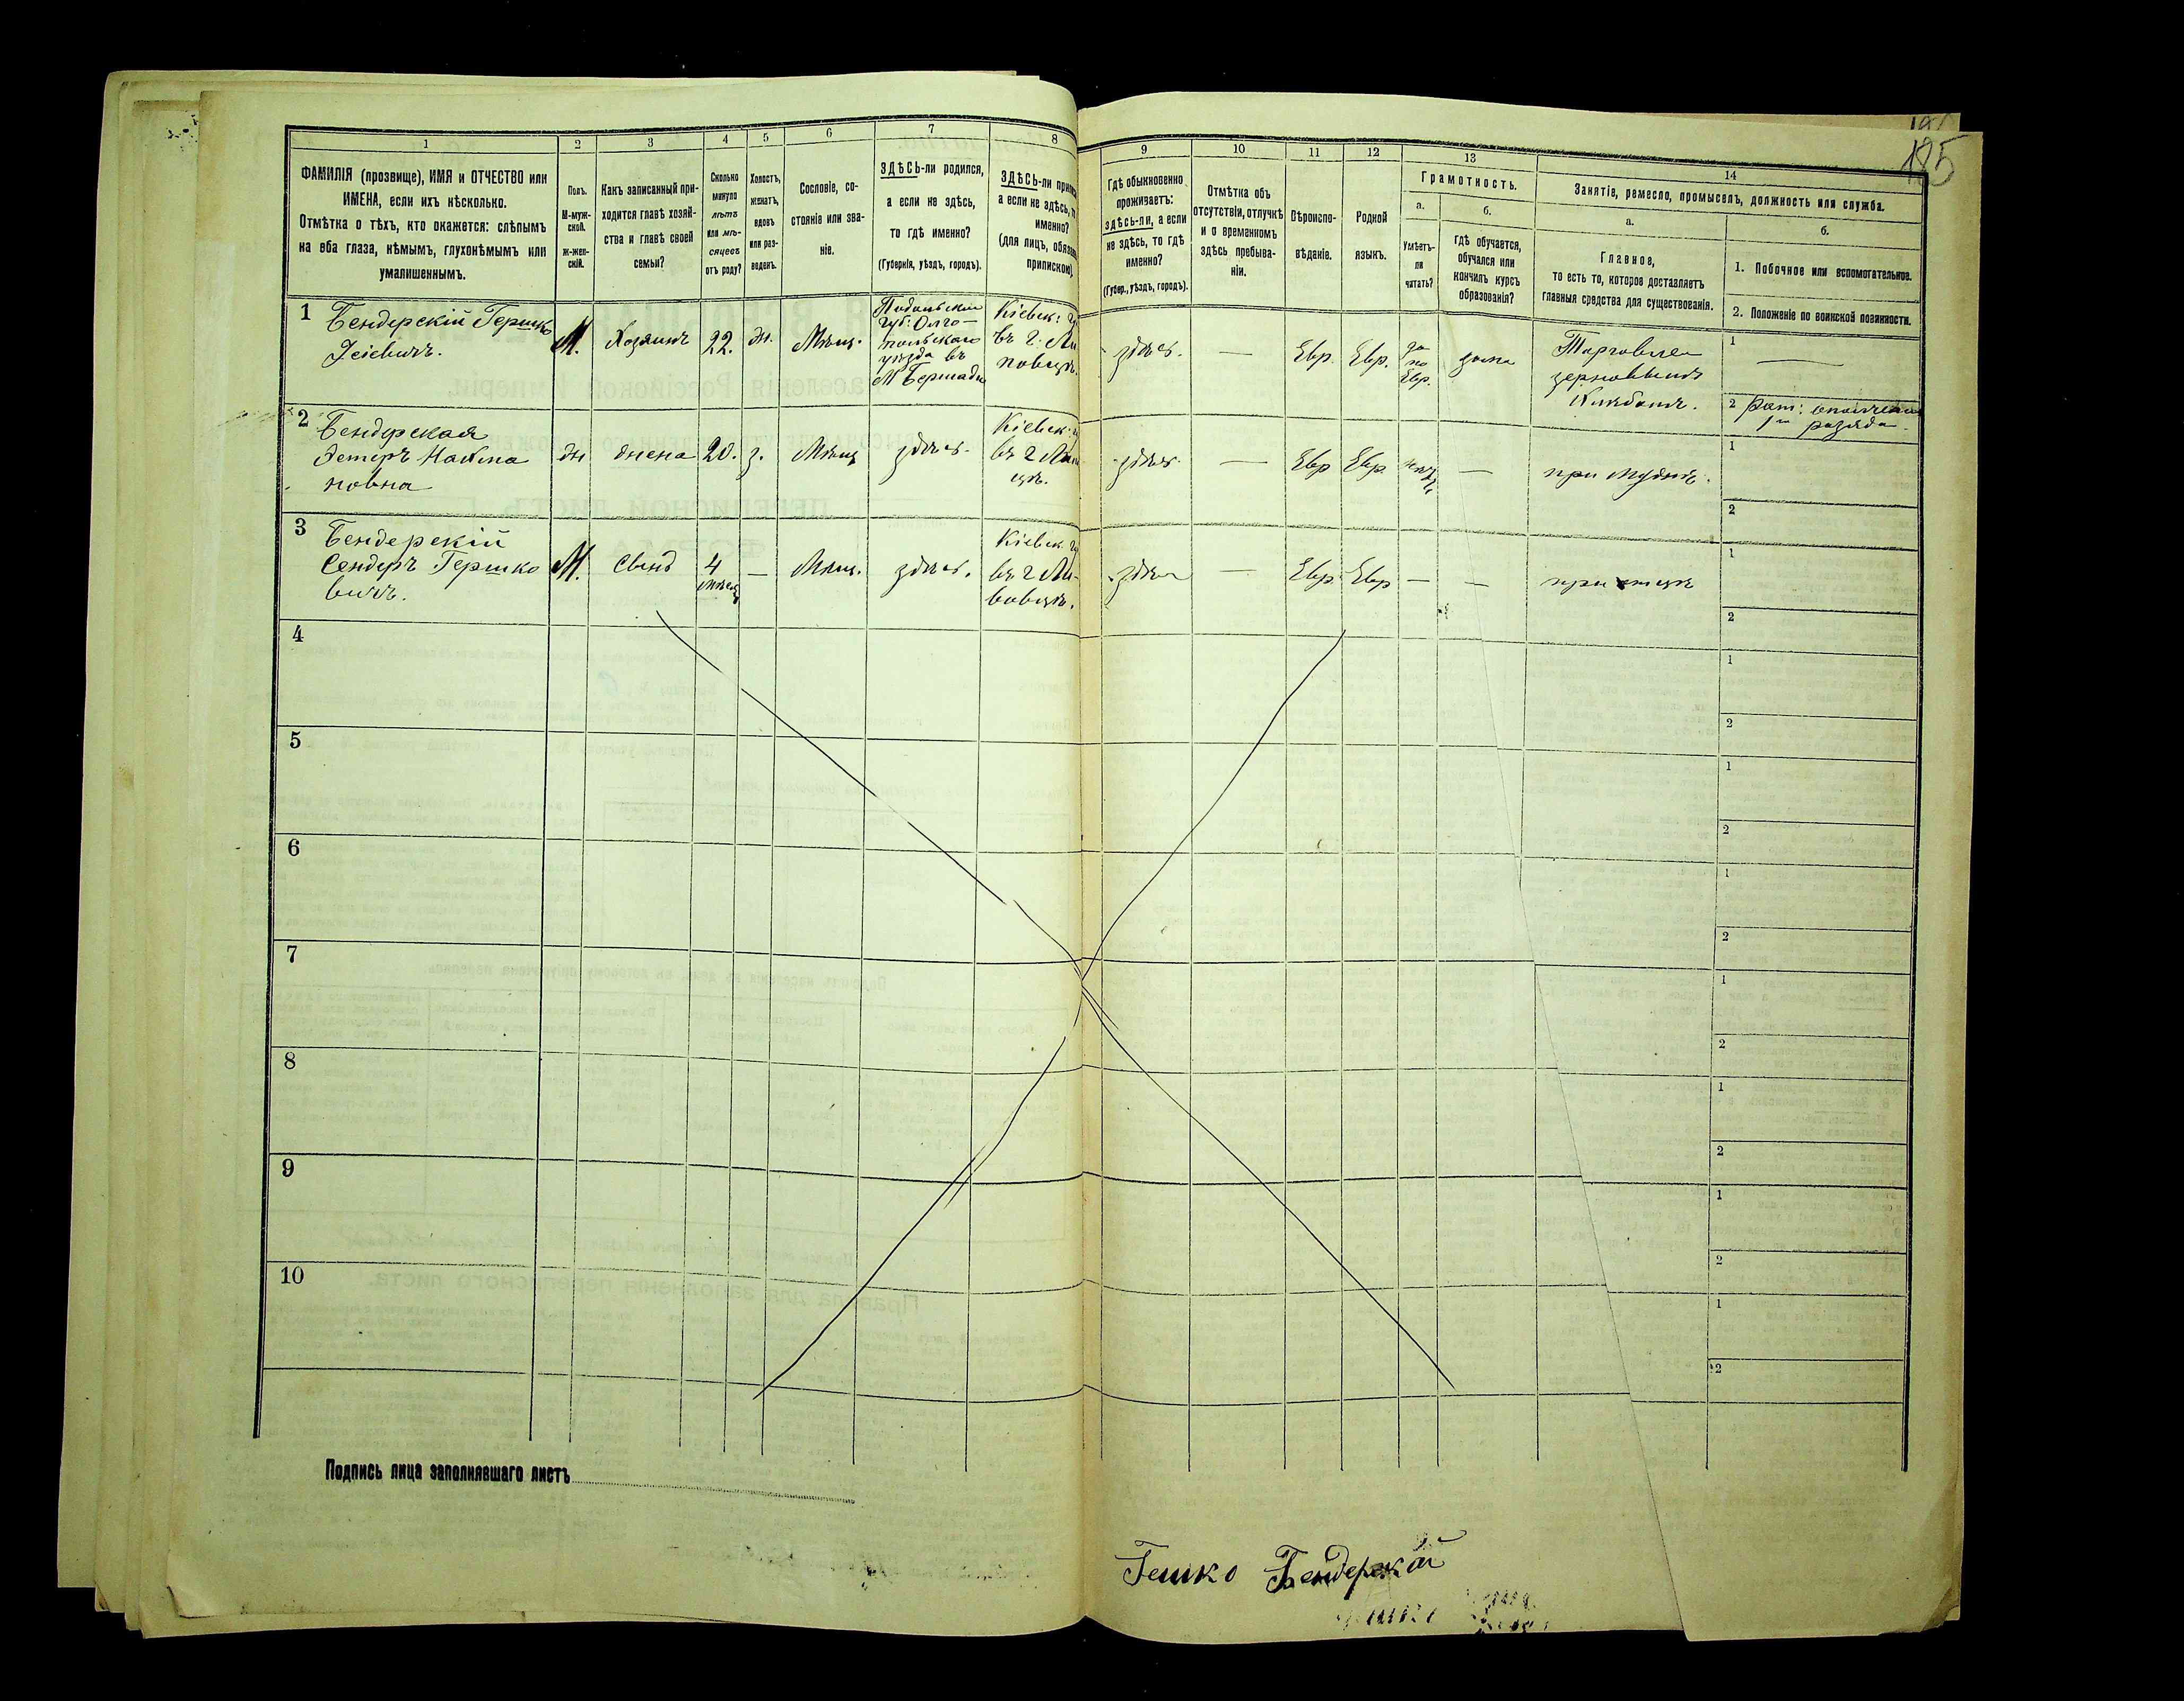 125
1
2
3
4
5
6
7
8
9
10
11
12
13
14
ФАМИЛІЯ (прозвище), ИМЯ и ОТЧЕСТВО или
ИМЕНА, если ихъ нѣсколько.
Отмѣтка о тѣхъ, кто окажется: слѣпымъ
на оба глаза, нѣмымъ, глухонѣмымъ или
умалишеннымъ.
Полъ.
М-муж-
ской.
ж-жен-
скій.
Какъ записанный при-
ходится главѣ хозяй-
ства и главѣ своей
семьи?
Сколько
минуло
лѣтъ
или мѣ-
сяцевъ
отъ роду?
Холостъ,
женатъ,
вдовъ
или раз-
веденъ.
Сословіе, со-
стояніе или зва-
ніе.
ЗДѢСЬ-ли родился,
а если не здѣсь,
то гдѣ именно?
(Губернія, уѣздъ, городъ).
ЗДѢСЬ-ли
а если не здѣсь,
именно?
(для лицъ,
припискою)
Гдѣ обыкновенно
проживаетъ:
здѣсь-ли, а если
не здѣсь, то гдѣ
именно?
(Губер., уѣздъ, городъ).
Отмѣтка объ
отсутствіи, отлучкѣ
и о временномъ
здѣсь пребыва-
ніи.
Вѣроиспо-
вѣданіе.
Родной
языкъ.
Грамотность.
а.
Умѣетъ-
ли
читать?
б.
Гдѣ обучается,
обучался или
кончилъ курсъ
образованія?
Занятіе, ремесло, промыселъ, должность или служба.
а.
Главное,
то есть то, которое доставляетъ
главныя средства для существованія.
б.
1. Побочное или вспомогательное.
2. Положеніе по воинской повинности.
1
Бендерскій Гершко
М.
Хозяинъ
22.
ж.
Мѣщ.
Подольской
губ: Олго-
польскаго
уѣзда въ
М Бершади
Кіевск:
въ г. Ли
повцѣ.
здѣсь.
—
Евр.
Евр.
да
по
Евр.
дома
Торговля
зерновымъ
Хлѣбомъ.
1
—
2 Рат: ополченія
1го разряда.
2
Бендерская
Эстеръ
ж
жена
20.
з.
Мѣщ
здѣсь.
Кіевск:
въ г Лип
цѣ.
здѣсь.
—
Евр
Евр.
—
при мужѣ.
1
2
3
Бендерскій
Сендеръ Гершко
вичъ.
М.
сынъ
4
мѣсяц
—
Мѣщ.
здѣсь.
Кіевск.
въ г Ли-
повцѣ.
здѣсь
—
Евр.
Евр
—
—
при отцѣ
1
2
4
1
2
5
1
2
6
1
2
7
1
2
8
1
2
9
1
2
10
1
2
Подпись лица заполнявшаго листъ
Гешко Бендерскій